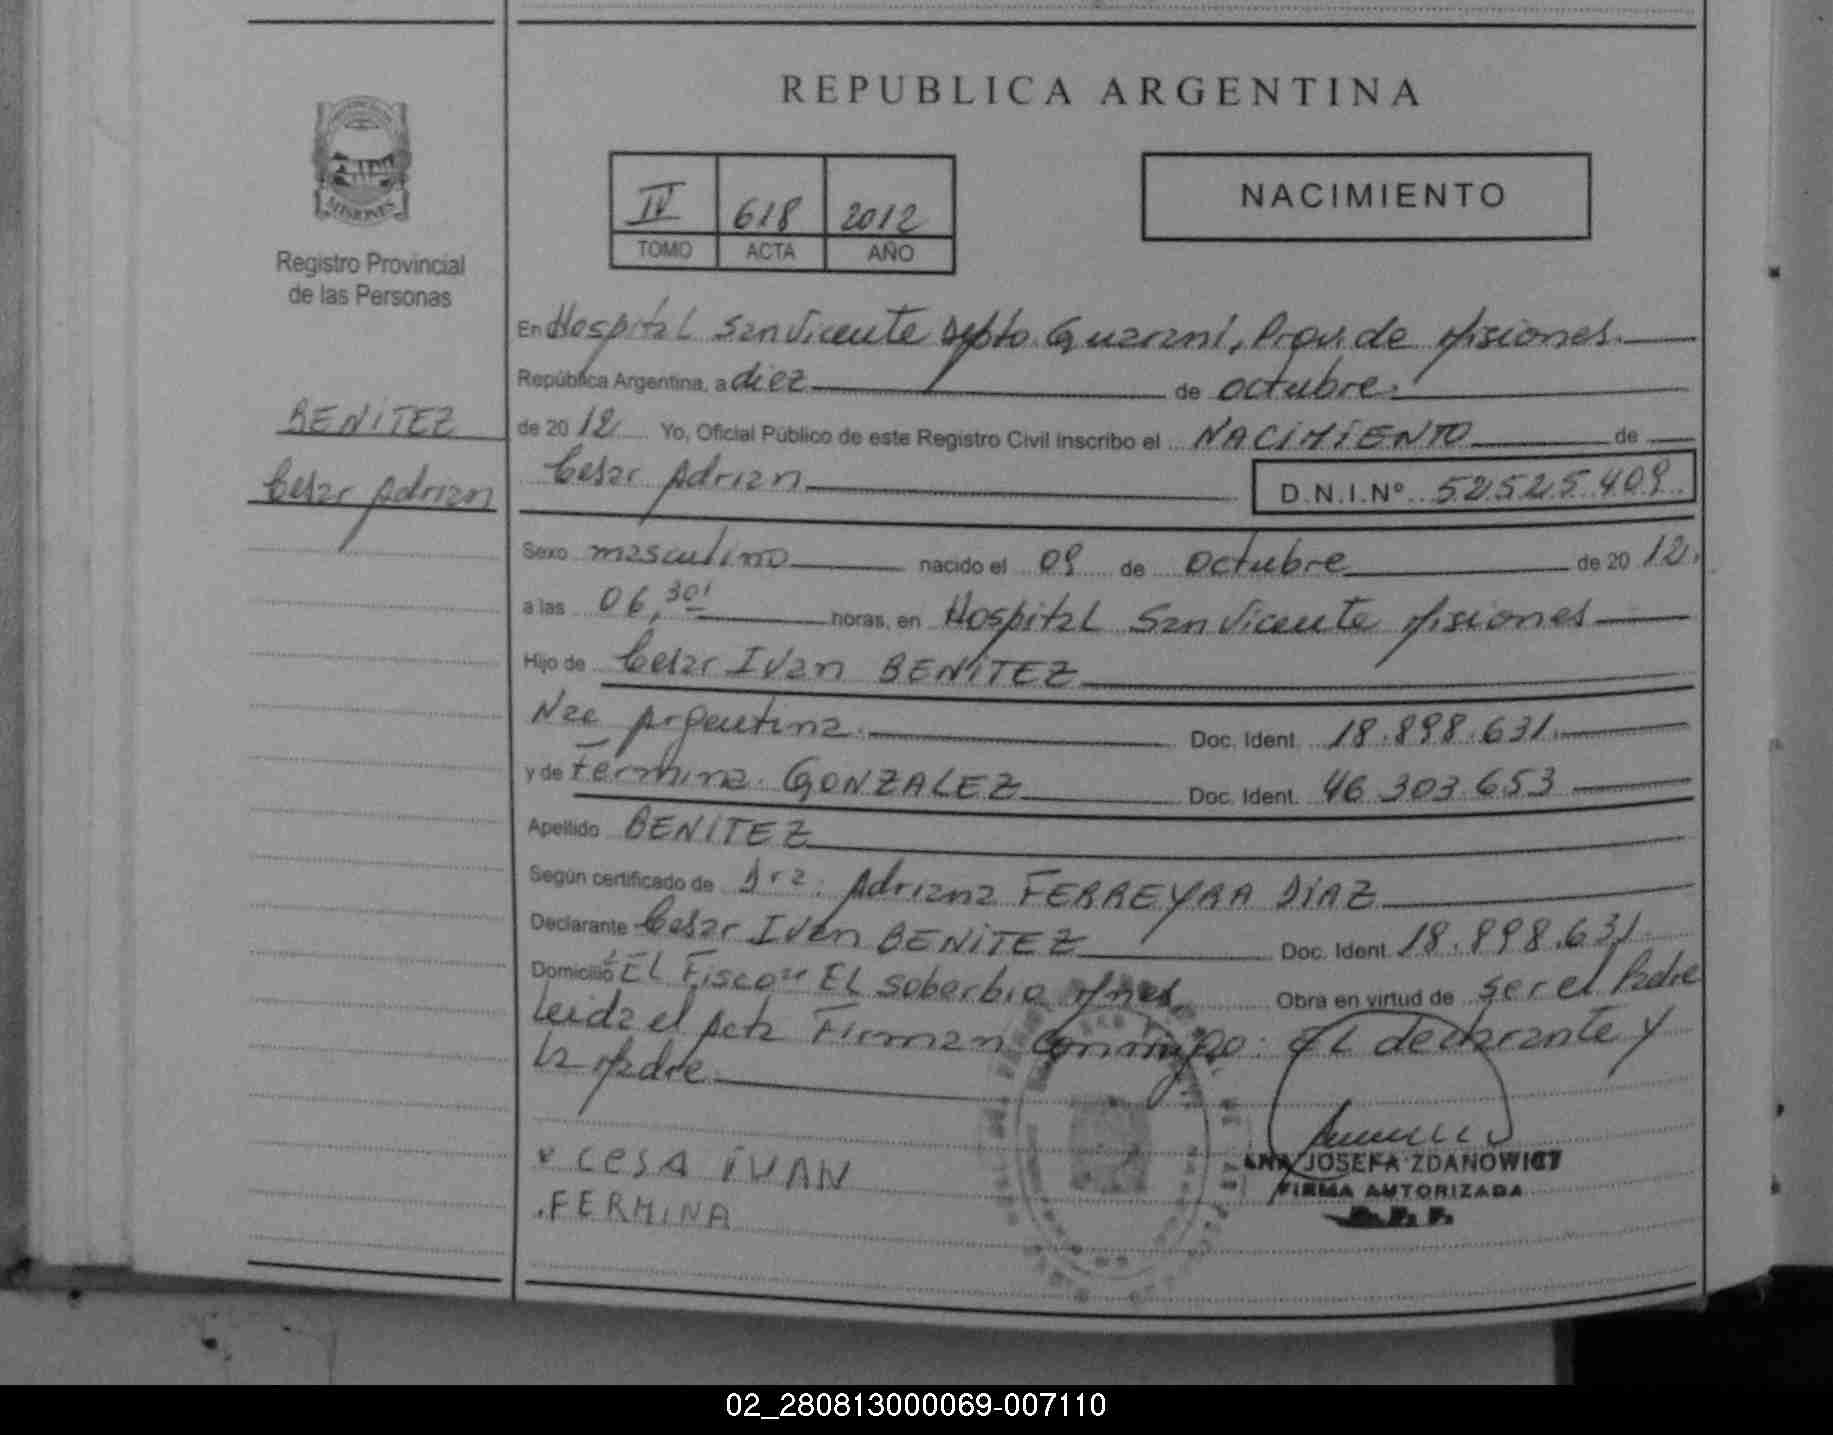 REPUBLICA ARGENTINA
MISIONES
Registro Provincial
de las Personas
IV 618 2012
TOMO ACTA AÑO
NACIMIENTO
BENITEZ
Cesar Adrian
En Hospital San Vicente Dpto. Guarani, Prov. de Misiones.
República Argentina, a diez de octubre.
de 2012 Yo, Oficial Público de este Registro Civil inscribo el NACIMIENTO de
Cesar Adrian D.N.I.Nº 52.525.409
Sexo masculino nacido el 09 de octubre de 2012.
a las 06,30' horas, en Hospital San Vicente Misiones
Hijo de Cesar Ivan BENITEZ
Nac Argentina. Doc. Ident. 18.898.631.
y de Fermina GONZALEZ Doc. Ident. 46.303.653
Apellido BENITEZ
Según certificado de Dra. Adriana FERREYRA DIAZ
Declarante Cesar Ivan BENITEZ Doc. Ident. 18.898.631
Domicilio "El Fisco" El Soberbio Mnes. Obra en virtud de ser el Padre
Leida el Acta Firman Conmigo: El declarante y
la Madre.
CESA IVAN
FERMINA
ANA JOSEFA ZDANOWICZ
FIRMA AUTORIZADA
02_280813000069-007110